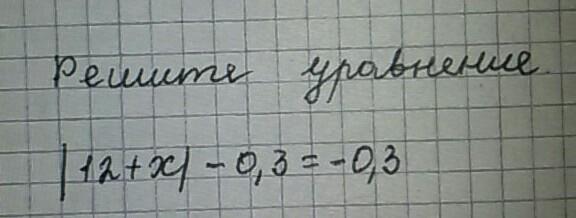 Решите уравнение.
|12+x| - 0,3 = -0,3